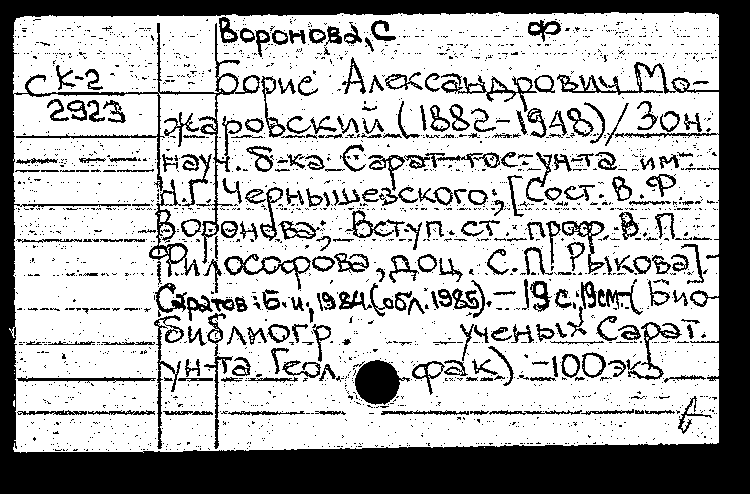 Воронова, С Ф.
С К-2
2923
Борис Александрович Мо-
жаровский (1882-1948) / Зон.
науч. б-ка Сарат. гос. ун-та им.
Н.Г. Чернышевского; [Сост. В. Ф
Воронова; Вступ. ст. проф. В. П.
Философова, доц. С. П. Рыкова].-
Саратов: Б. и., 1984 (обл. 1985). - 19 с.; 19 см - (Био-
библиогр. ученых Сарат.
ун-та. Геол. фак). - 100 экз.